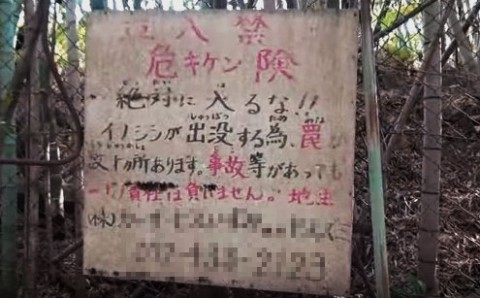 立入禁
危キケン険
絶対に入るな!!
イノシシが出没する為、罠
数十ヵ所あります。事故等があっても
一切責任は負いません。地主
(株)